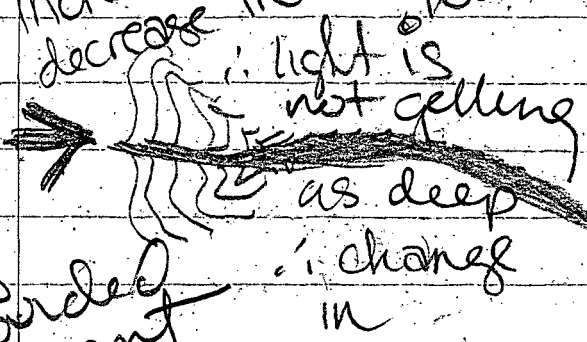 decrease
∴ light is
not getting
as deep
∴ change
in